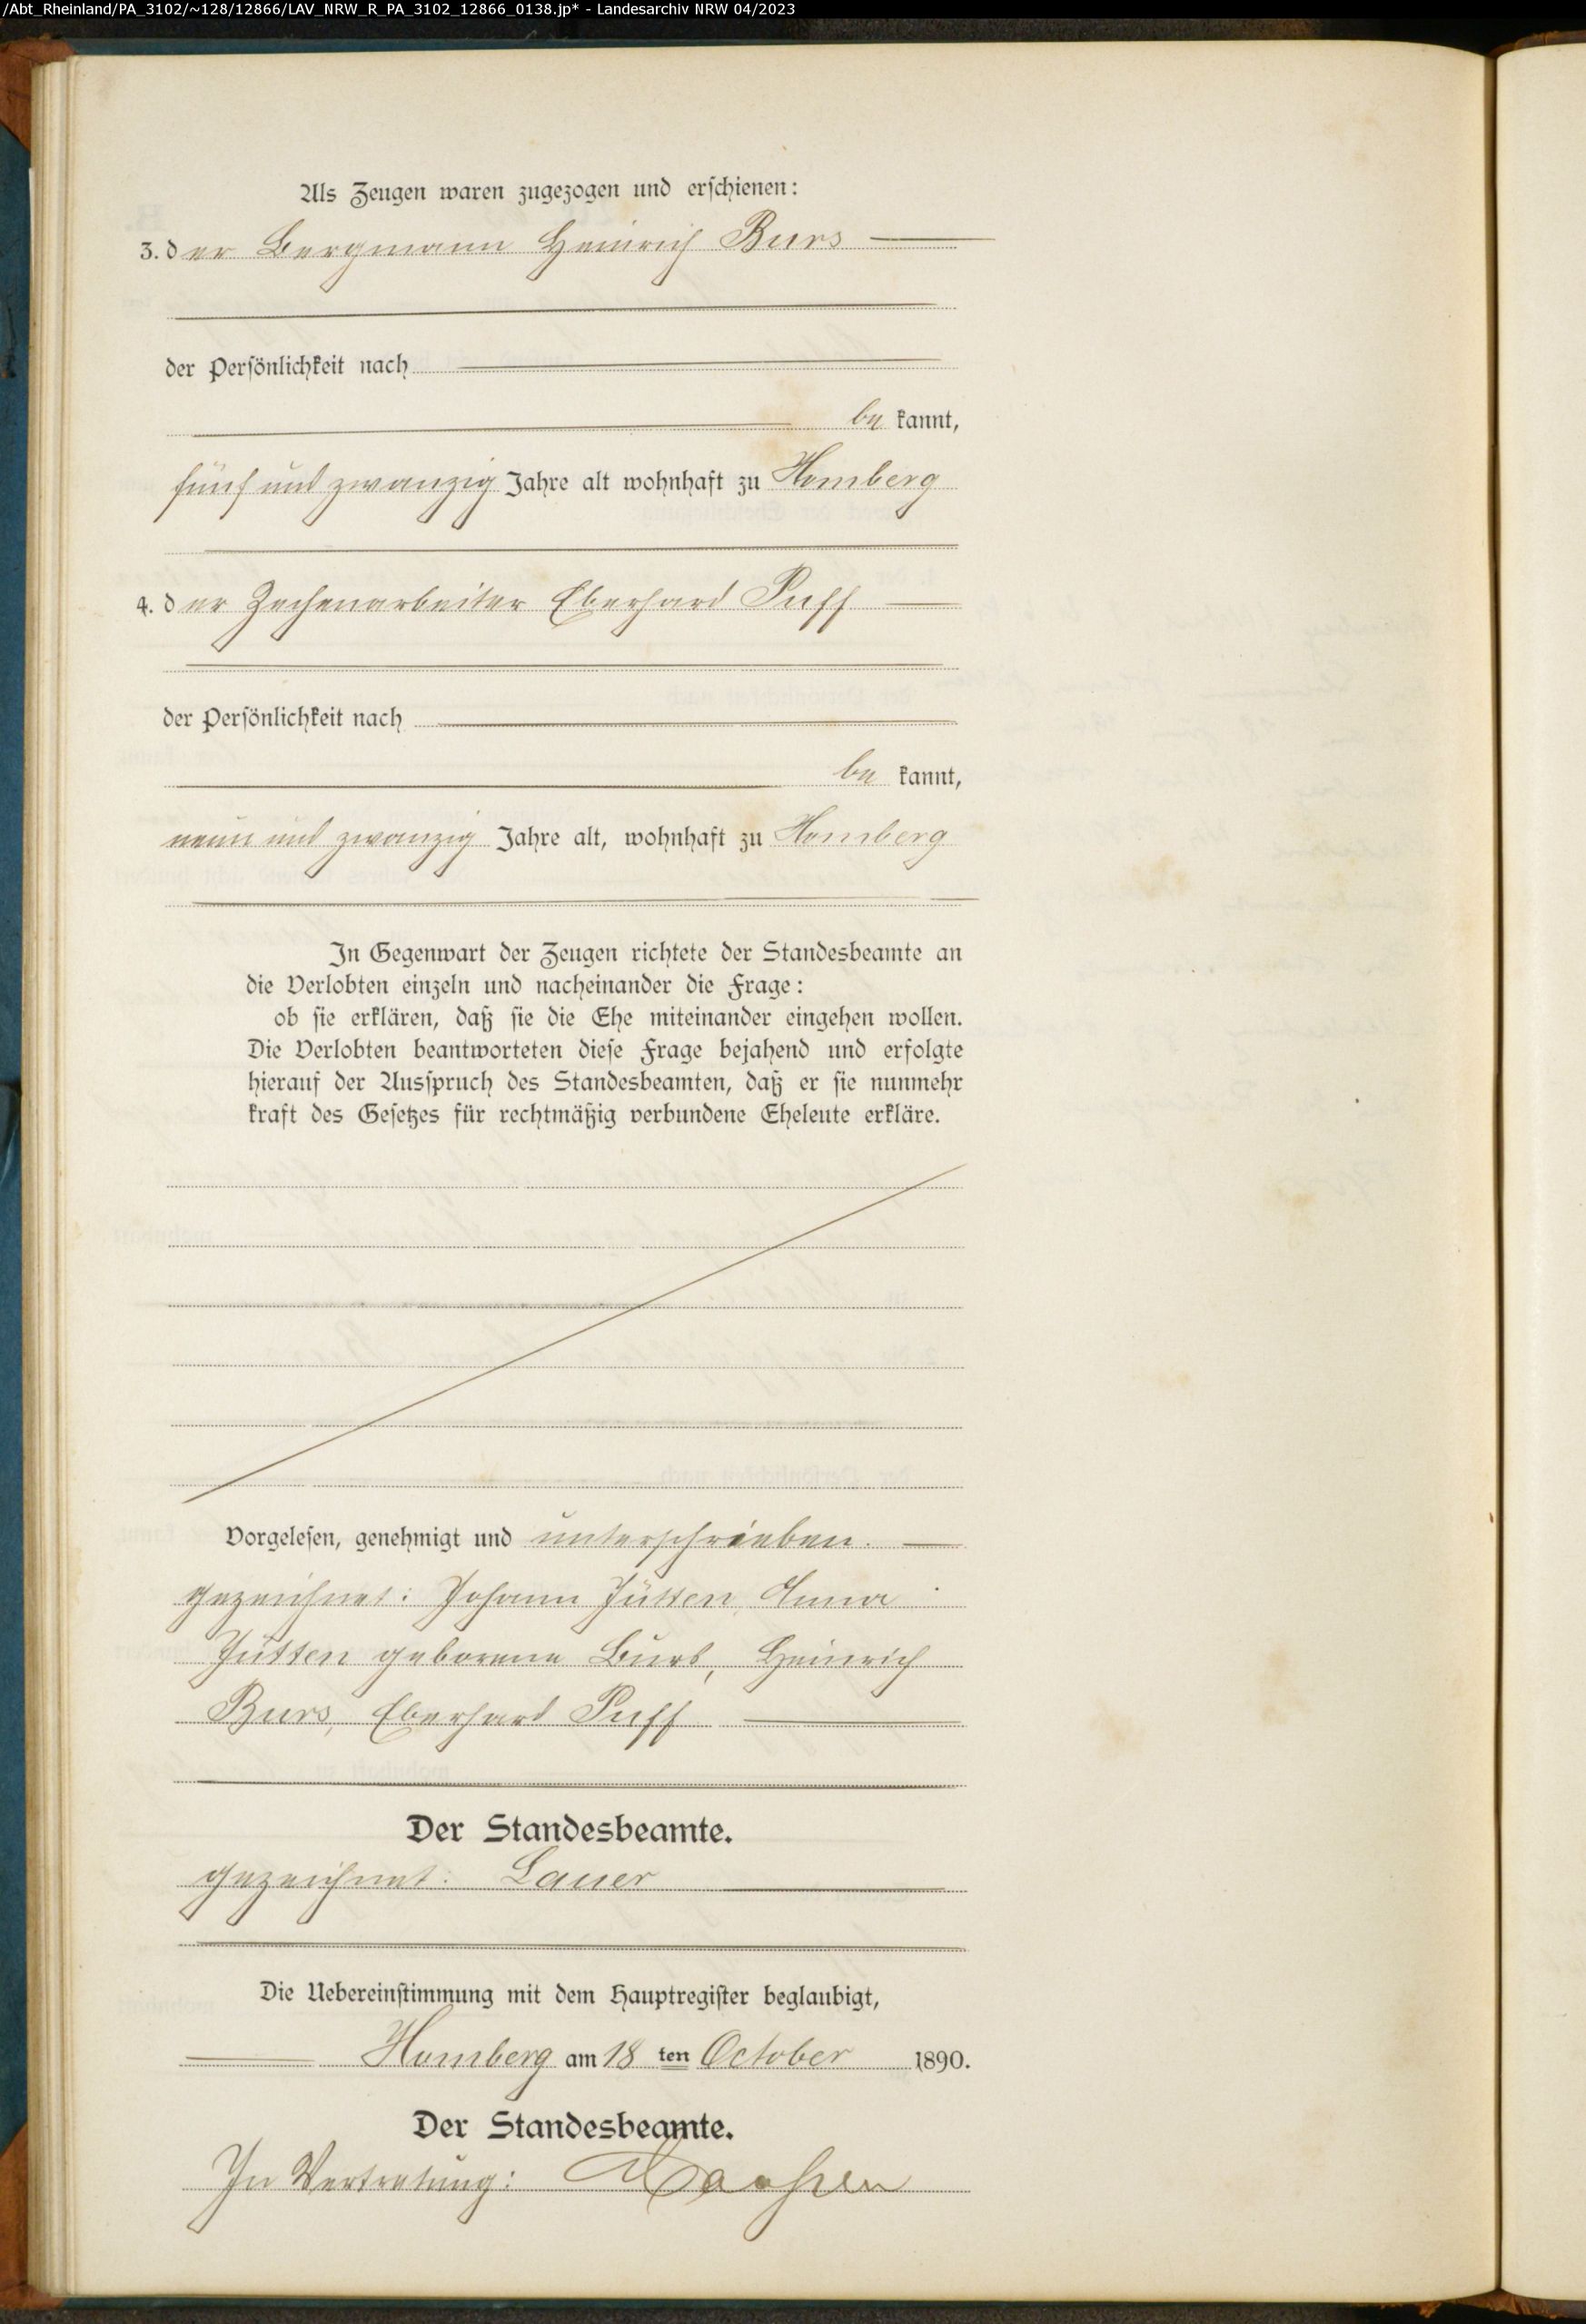 /Abt_Rheinland/PA_3102/~128/12866/LAV_NRW_R_PA_3102_12866_0138.jp* - Landesarchiv NRW 04/2023
Als Zeugen waren zugezogen und erschienen:
3. der Bergmann Heinrich Burs
der Persönlichkeit nach
be kannt,
fünf und zwanzig Jahre alt wohnhaft zu Homberg
4. der Zechenarbeiter Eberhard Puff
der Persönlichkeit nach
be kannt,
neun und zwanzig Jahre alt, wohnhaft zu Homberg
In Gegenwart der Zeugen richtete der Standesbeamte an
die Verlobten einzeln und nacheinander die Frage:
ob sie erklären, daß sie die Ehe miteinander eingehen wollen.
Die Verlobten beantworteten diese Frage bejahend und erfolgte
hierauf der Ausspruch des Standesbeamten, daß er sie nunmehr
kraft des Gesetzes für rechtmäßig verbundene Eheleute erkläre.
Vorgelesen, genehmigt und unterschrieben.
gezeichnet: Johann Jütten, Anna
Jütten geborene Burs, Heinrich
Burs, Eberhard Puff
Der Standesbeamte.
gezeichnet: Lauer
Die Uebereinstimmung mit dem Hauptregister beglaubigt,
Homberg am 18 ten October 1890.
Der Standesbeamte.
In Vertretung: